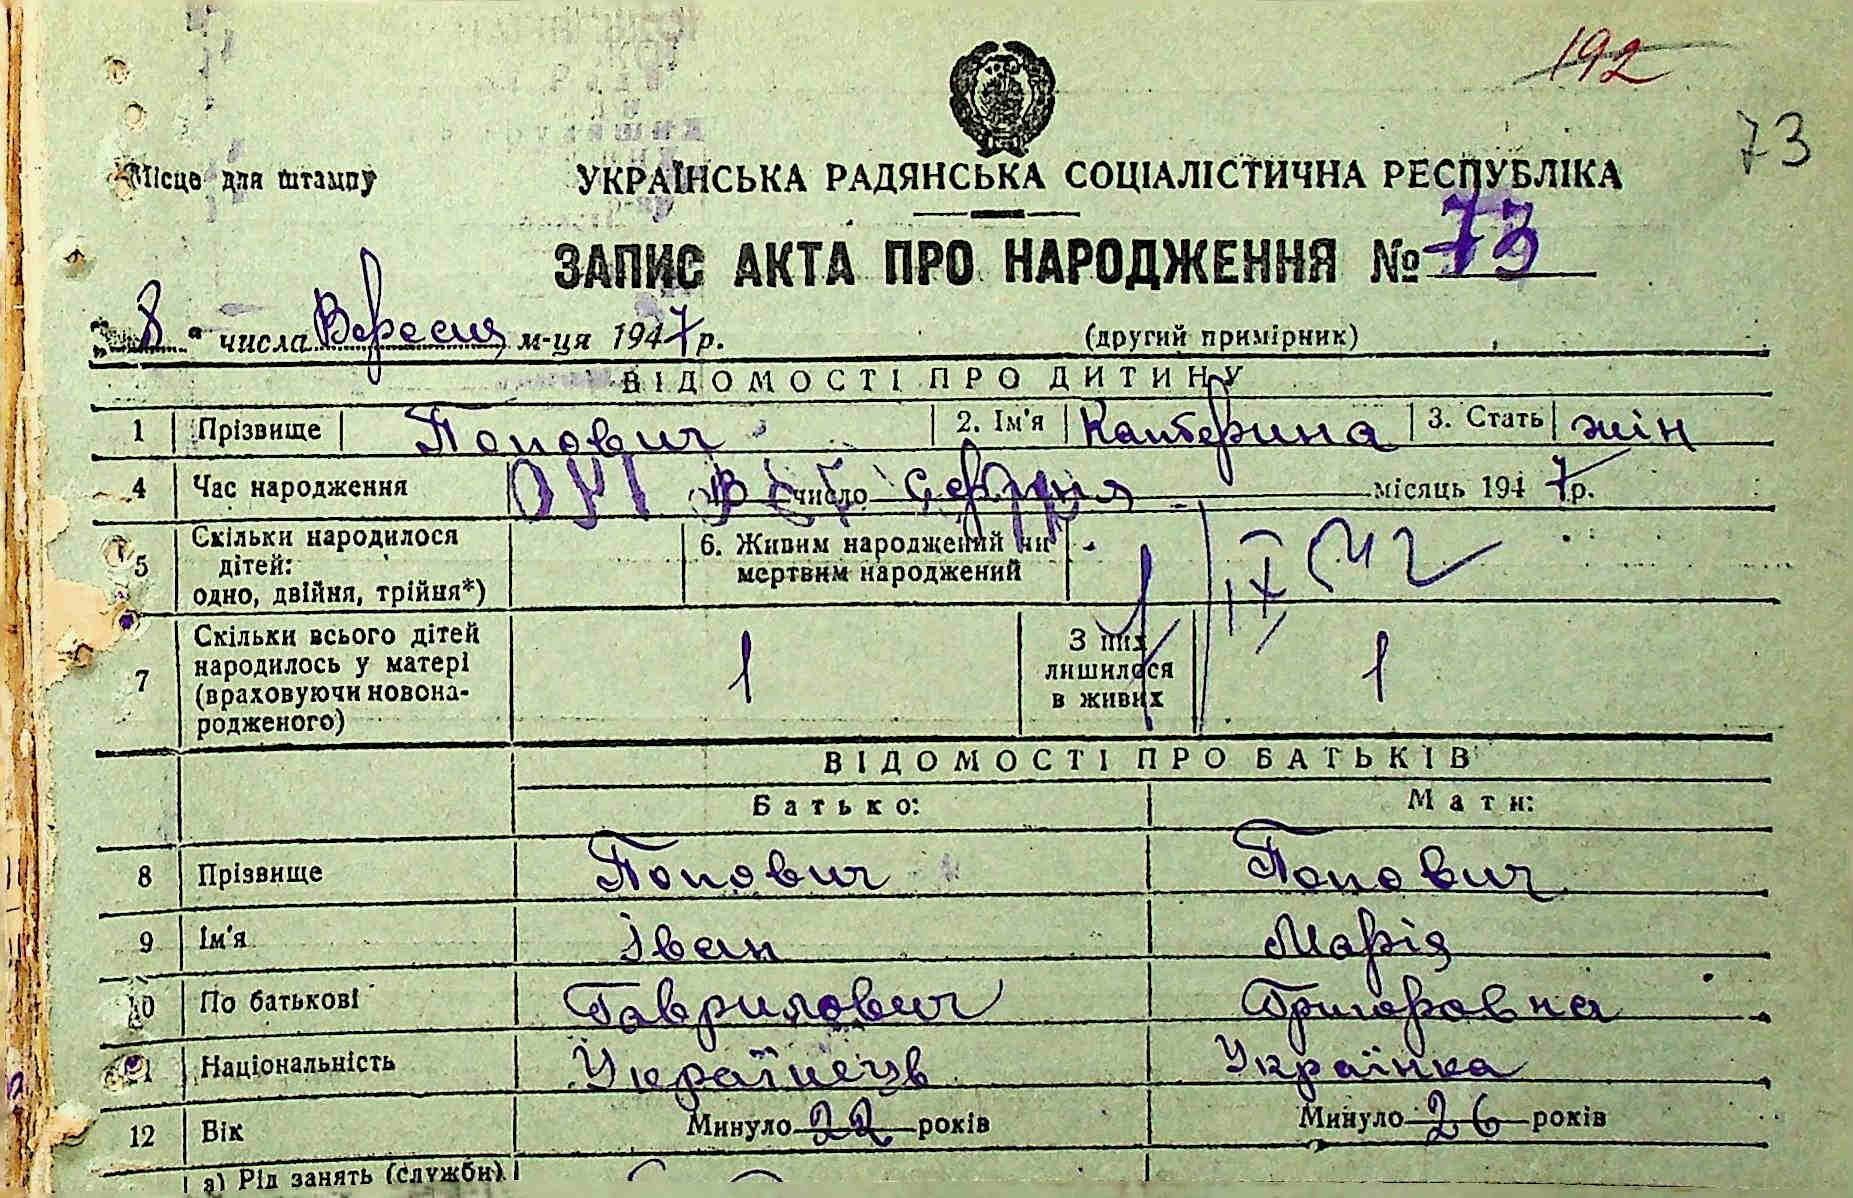 192
73
Місце для штампу
УКРАЇНСЬКА РАДЯНСЬКА СОЦІАЛІСТИЧНА РЕСПУБЛІКА
ЗАПИС АКТА ПРО НАРОДЖЕННЯ № 73
8 " числа Вересня м-ця 1947 р.
(другий примірник)
ВІДОМОСТІ ПРО ДИТИНУ
1 Прізвище Попович 2. Ім'я Катерина 3. Стать жін
4 Час народження число Серпня місяць 1947 р.
5 Скільки народилося дітей: одно, двійня, трійня*) 6. Живим народжений чи мертвим народжений
7 Скільки всього дітей народилось у матері (враховуючи новонародженого) 1 З них лишилося в живих 1
ВІДОМОСТІ ПРО БАТЬКІВ
Батько: Мати:
8 Прізвище Попович Попович
9 Ім'я Іван Марія
10 По батькові Гаврилович Григоровна
11 Національність Українець Українка
12 Вік Минуло 22 років Минуло 26 років
а) Рід занять (служби)